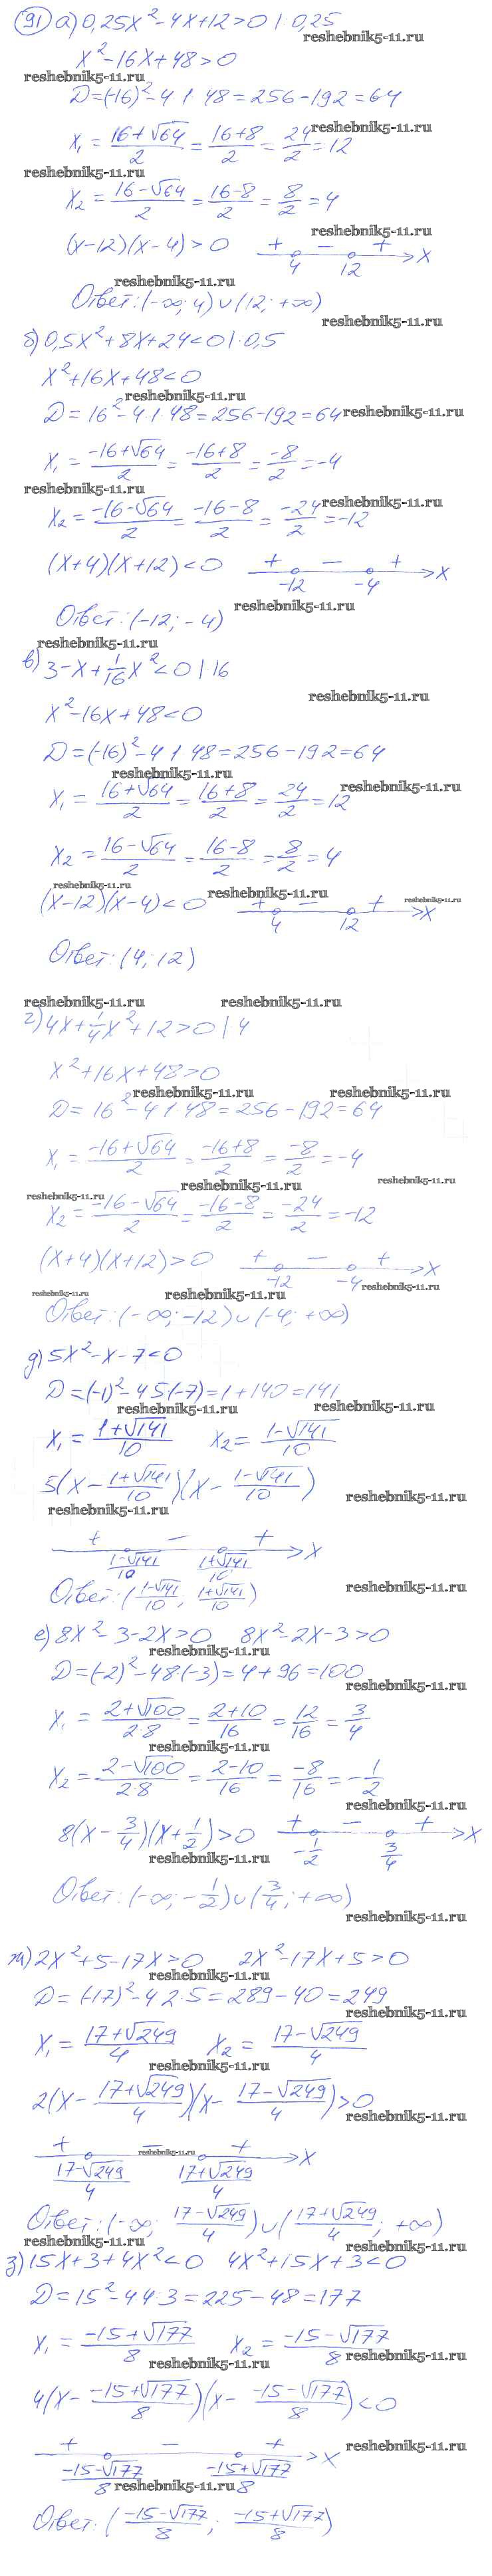 91 а) 0,25x² - 4x + 12 > 0 | : 0,25
reshebnik5-11.ru
x² - 16x + 48 > 0
reshebnik5-11.ru
D = (-16)² - 4·1·48 = 256 - 192 = 64
x₁ = (16+√64)/2 = (16+8)/2 = 24/2 = 12
reshebnik5-11.ru
reshebnik5-11.ru
x₂ = (16-√64)/2 = (16-8)/2 = 8/2 = 4
reshebnik5-11.ru
(x-12)(x-4) > 0 + - + 4 12 x
reshebnik5-11.ru
Ответ: (-∞; 4) ∪ (12; +∞)
reshebnik5-11.ru
б) 0,5x² + 8x + 24 < 0 | · 0,5
x² + 16x + 48 < 0
reshebnik5-11.ru
D = 16² - 4·1·48 = 256 - 192 = 64 reshebnik5-11.ru
x₁ = (-16+√64)/2 = (-16+8)/2 = -8/2 = -4
reshebnik5-11.ru
reshebnik5-11.ru
x₂ = (-16-√64)/2 = (-16-8)/2 = -24/2 = -12
(x+4)(x+12) < 0 + - + -12 -4 x
reshebnik5-11.ru
Ответ: (-12; -4)
reshebnik5-11.ru
в) 3 - x + 1/16 x² < 0 | 16
reshebnik5-11.ru
x² - 16x + 48 < 0
D = (-16)² - 4·1·48 = 256 - 192 = 64
reshebnik5-11.ru
reshebnik5-11.ru
x₁ = (16+√64)/2 = (16+8)/2 = 24/2 = 12
x₂ = (16-√64)/2 = (16-8)/2 = 8/2 = 4
reshebnik5-11.ru
reshebnik5-11.ru
reshebnik5-11.ru
(x-12)(x-4) < 0 + - + 4 12 x
Ответ: (4; 12)
reshebnik5-11.ru reshebnik5-11.ru
г) 4x + 1/4 x² + 12 > 0 | 4
x² + 16x + 48 > 0
reshebnik5-11.ru reshebnik5-11.ru
D = 16² - 4·1·48 = 256 - 192 = 64
x₁ = (-16+√64)/2 = (-16+8)/2 = -8/2 = -4
reshebnik5-11.ru
reshebnik5-11.ru
reshebnik5-11.ru
x₂ = (-16-√64)/2 = (-16-8)/2 = -24/2 = -12
(x+4)(x+12) > 0 + - + -12 -4 x
reshebnik5-11.ru
reshebnik5-11.ru
reshebnik5-11.ru
Ответ: (-∞; -12) ∪ (-4; +∞)
д) 5x² - x - 7 < 0
D = (-1)² - 4·5(-7) = 1 + 140 = 141
reshebnik5-11.ru
reshebnik5-11.ru
x₁ = (1+√141)/10 x₂ = (1-√141)/10
5(x - (1+√141)/10)(x - (1-√141)/10)
reshebnik5-11.ru
reshebnik5-11.ru
+ - + (1-√141)/10 (1+√141)/10 x
reshebnik5-11.ru
Ответ: ((1-√141)/10; (1+√141)/10)
е) 8x² - 3 - 2x > 0 8x² - 2x - 3 > 0
reshebnik5-11.ru
D = (-2)² - 4·8·(-3) = 4 + 96 = 100
reshebnik5-11.ru
x₁ = (2+√100)/2·8 = (2+10)/16 = 12/16 = 3/4
reshebnik5-11.ru
x₂ = (2-√100)/2·8 = (2-10)/16 = -8/16 = -1/2
reshebnik5-11.ru
8(x - 3/4)(x + 1/2) > 0 + - + -1/2 3/4 x
reshebnik5-11.ru
Ответ: (-∞; -1/2) ∪ (3/4; +∞)
reshebnik5-11.ru
ж) 2x² + 5 - 17x > 0 2x² - 17x + 5 > 0
reshebnik5-11.ru
D = (-17)² - 4·2·5 = 289 - 40 = 249
reshebnik5-11.ru
x₁ = (17+√249)/4 x₂ = (17-√249)/4
reshebnik5-11.ru
2(x - (17+√249)/4)(x - (17-√249)/4) > 0
reshebnik5-11.ru
+ - + (17-√249)/4 (17+√249)/4 x
reshebnik5-11.ru
Ответ: (-∞; (17-√249)/4) ∪ ((17+√249)/4; +∞)
reshebnik5-11.ru
reshebnik5-11.ru
з) 15x + 3 + 4x² < 0 4x² + 15x + 3 < 0
D = 15² - 4·4·3 = 225 - 48 = 177
x₁ = (-15+√177)/8 x₂ = (-15-√177)/8
reshebnik5-11.ru
reshebnik5-11.ru
4(x - (-15+√177)/8)(x - (-15-√177)/8) < 0
reshebnik5-11.ru
+ - + (-15-√177)/8 (-15+√177)/8 x
reshebnik5-11.ru
Ответ: ((-15-√177)/8; (-15+√177)/8)